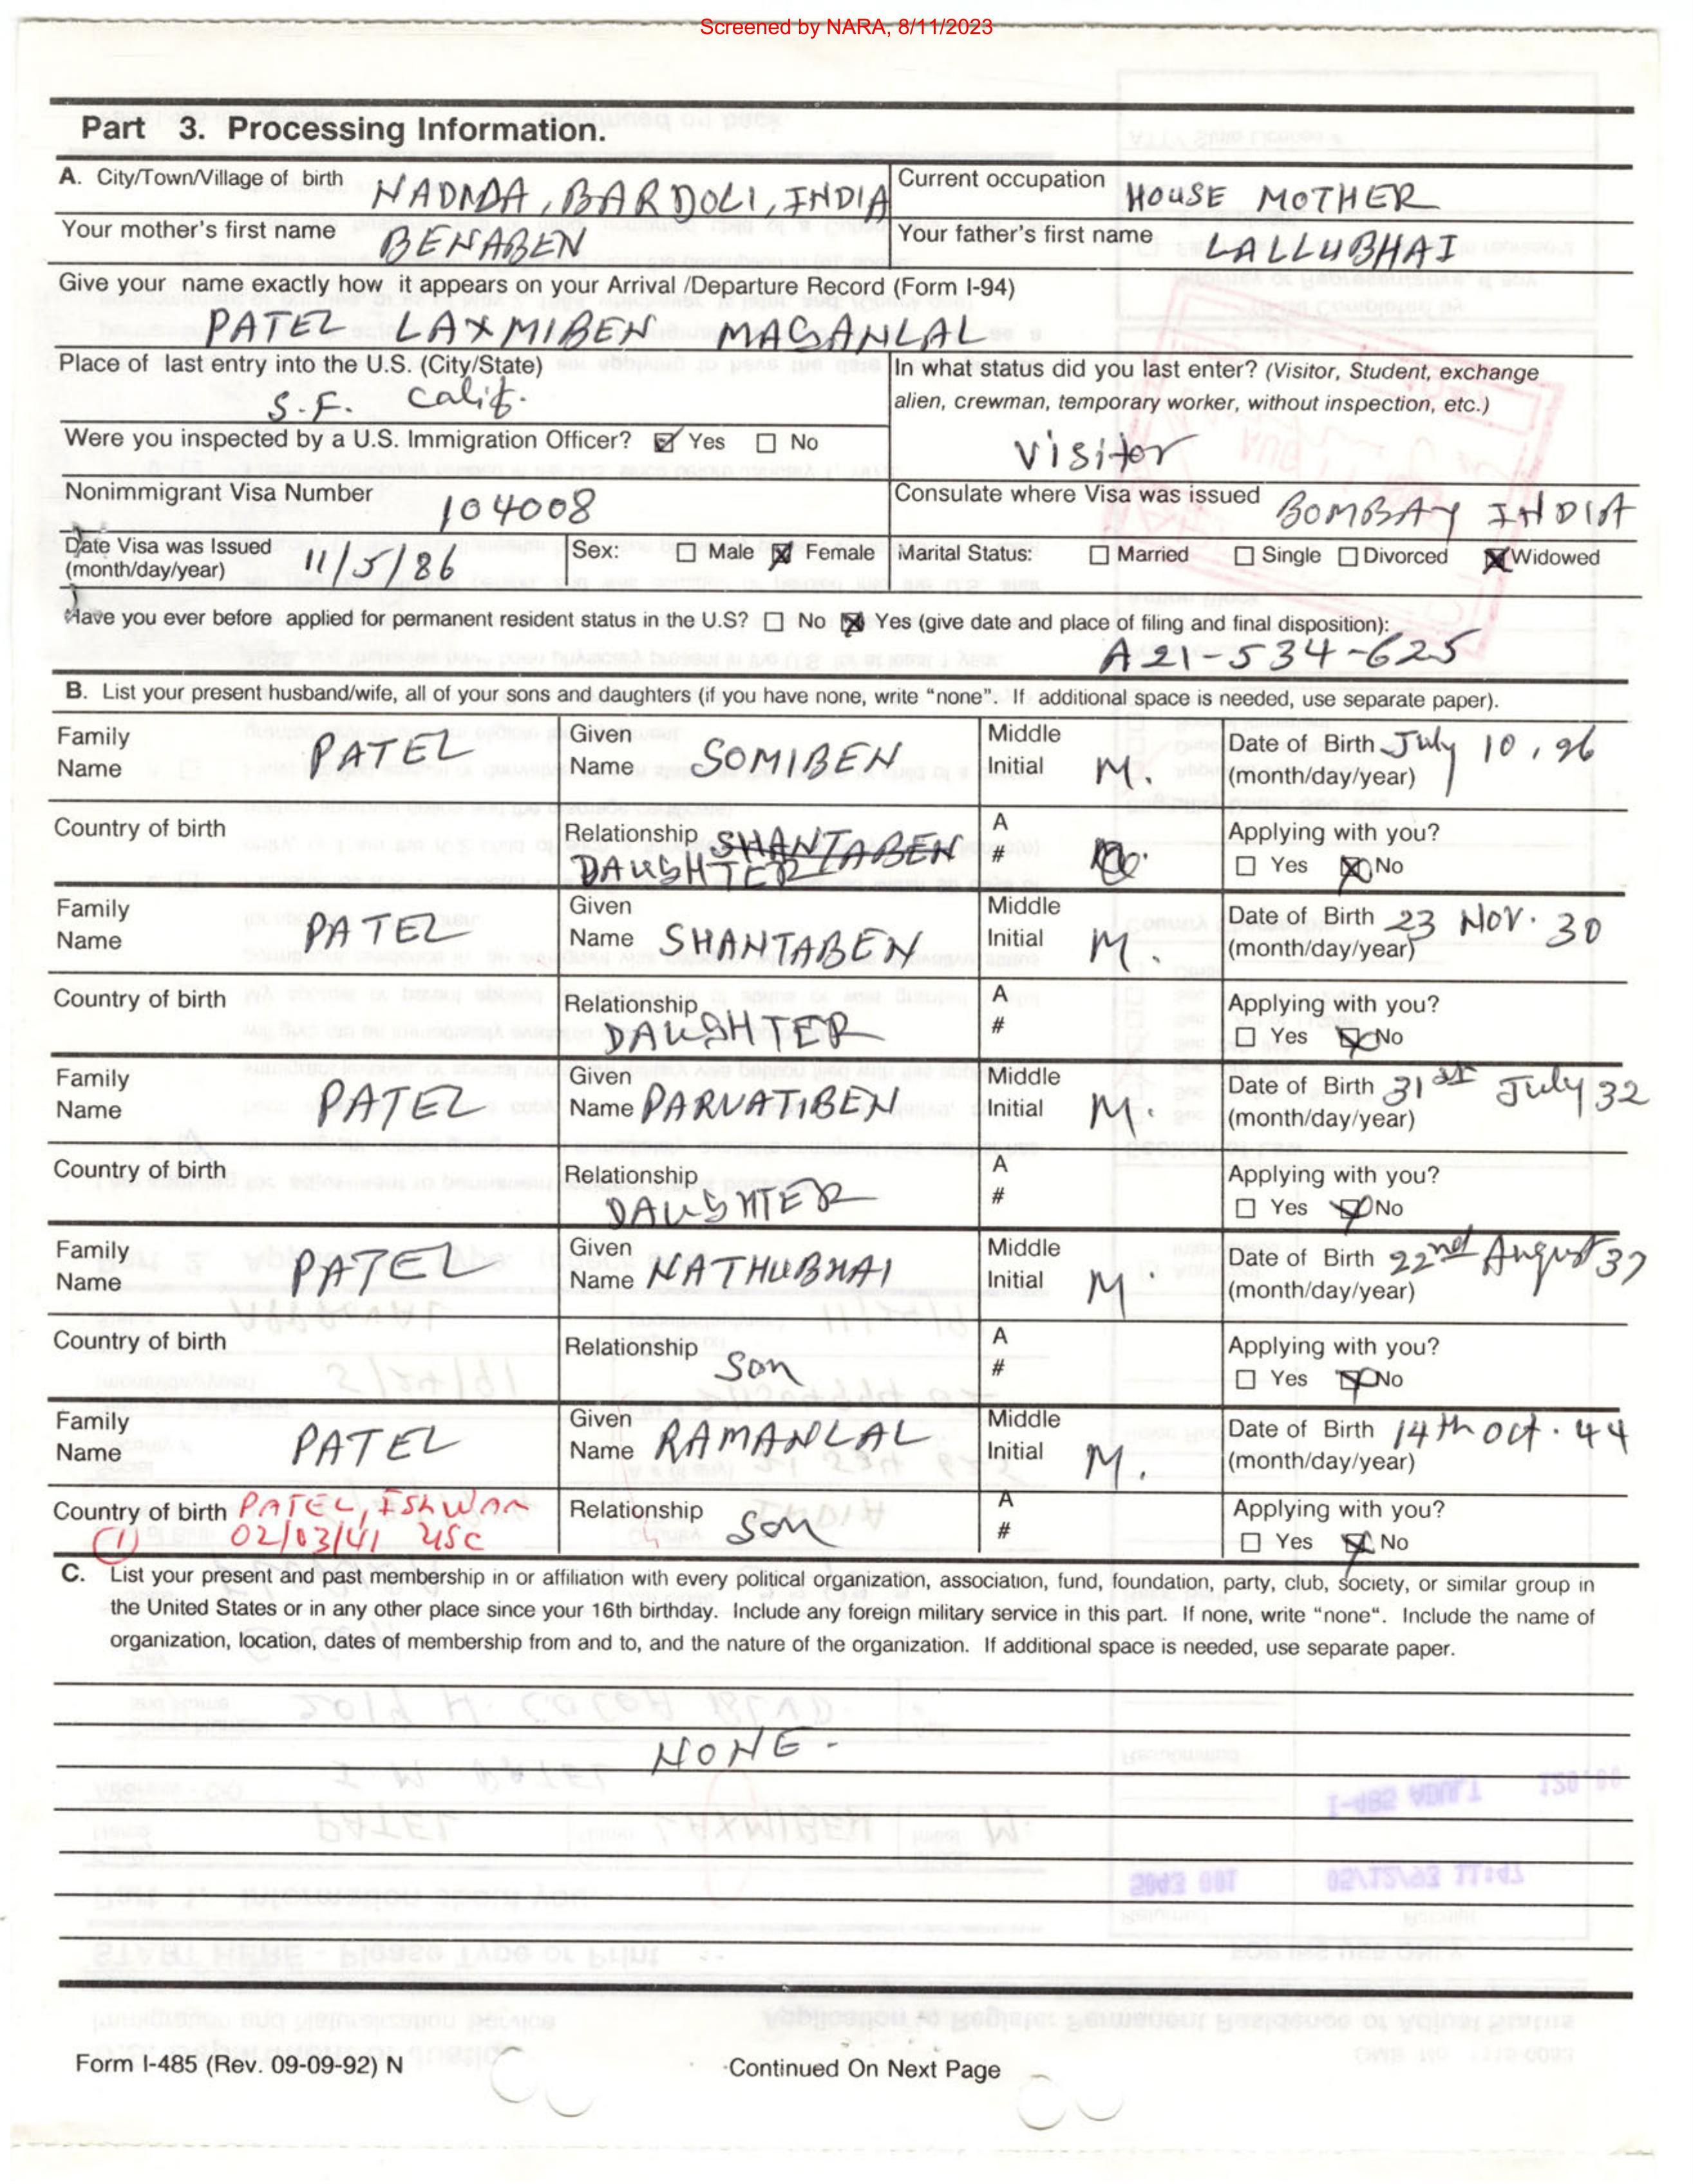 Screened by NARA, 8/11/2023
Part 3. Processing Information.
A. City/Town/Village of birth NADIDA, BARDOLI, INDIA
Current occupation HOUSE MOTHER
Your mother's first name BENABEN
Your father's first name LALLUBHAI
Give your name exactly how it appears on your Arrival /Departure Record (Form I-94)
PATEL LAXMIBEN MAGANLAL
Place of last entry into the U.S. (City/State)
S.F. Calif.
In what status did you last enter? (Visitor, Student, exchange
alien, crewman, temporary worker, without inspection, etc.)
Visitor
Were you inspected by a U.S. Immigration Officer? Yes No
Nonimmigrant Visa Number 104008
Consulate where Visa was issued BOMBAY INDIA
Date Visa was Issued
(month/day/year) 11/5/86
Sex: Male Female
Marital Status: Married Single Divorced Widowed
Have you ever before applied for permanent resident status in the U.S? No Yes (give date and place of filing and final disposition):
A21-534-625
B. List your present husband/wife, all of your sons and daughters (if you have none, write "none". If additional space is needed, use separate paper).
Family Name PATEL
Given Name SOMIBEN
Middle Initial M.
Date of Birth July 10, 26
(month/day/year)
Country of birth
Relationship SHANTABEN
DAUGHTER
A #
Applying with you?
Yes No
Family Name PATEL
Given Name SHANTABEN
Middle Initial M.
Date of Birth 23 NOV. 30
(month/day/year)
Country of birth
Relationship DAUGHTER
A #
Applying with you?
Yes No
Family Name PATEL
Given Name PARVATIBEN
Middle Initial M.
Date of Birth 31st July 32
(month/day/year)
Country of birth
Relationship DAUGHTER
A #
Applying with you?
Yes No
Family Name PATEL
Given Name NATHUBHAI
Middle Initial M.
Date of Birth 22nd August 37
(month/day/year)
Country of birth
Relationship Son
A #
Applying with you?
Yes No
Family Name PATEL
Given Name RAMANLAL
Middle Initial M.
Date of Birth 14th Oct. 44
(month/day/year)
Country of birth PATEL, ISHWAR
(1) 02/03/41 USC
Relationship Son
A #
Applying with you?
Yes No
C. List your present and past membership in or affiliation with every political organization, association, fund, foundation, party, club, society, or similar group in
the United States or in any other place since your 16th birthday. Include any foreign military service in this part. If none, write "none". Include the name of
organization, location, dates of membership from and to, and the nature of the organization. If additional space is needed, use separate paper.
NONE.
Form I-485 (Rev. 09-09-92) N
Continued On Next Page